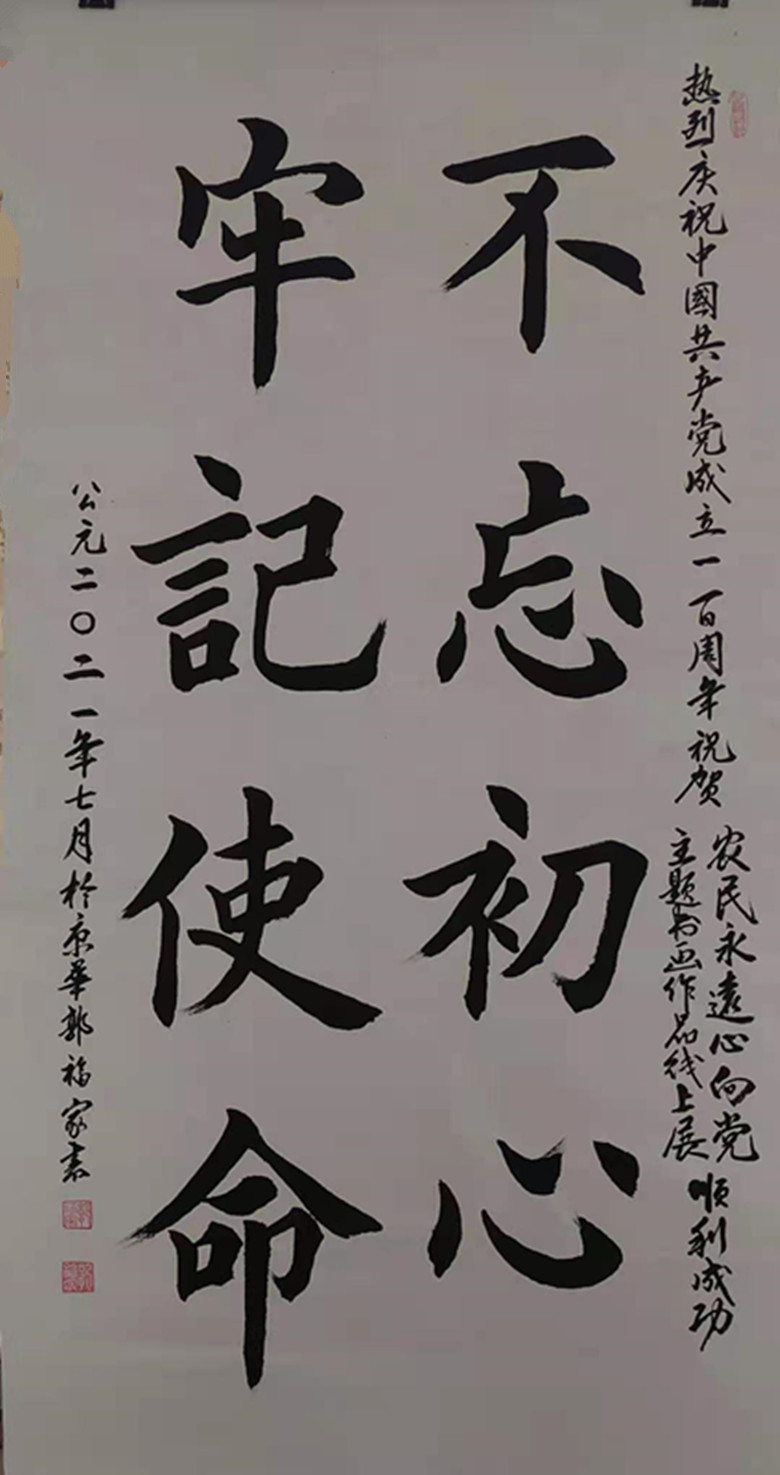 热烈庆祝中國共产党成立一百周年祝贺
农民永遠心向党
主题书画作品线上展
顺利成功
不忘初心
牢記使命
公元二〇二一年七月於京華郭福家书